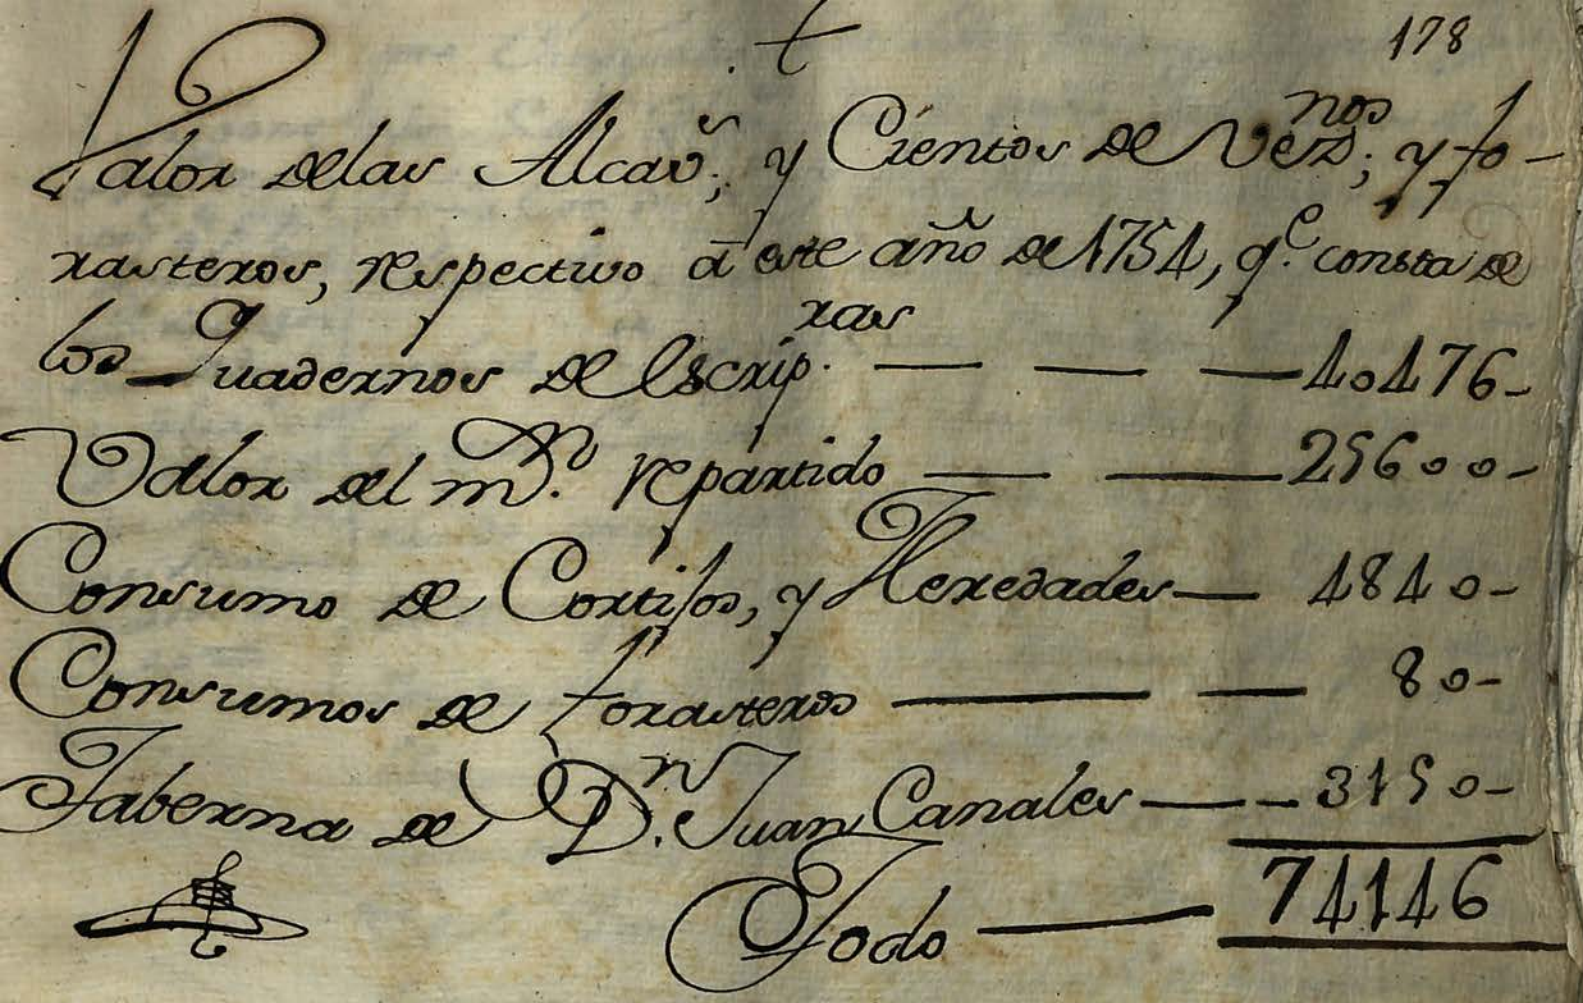 178
Valor delas Alcav.s, y Cientos de Vez.nos; y fo-
rasteros, respectivo â este año de 1754, q.e consta de
los Quadernos de Escrip.ras — — — 40476-
Valor del m.ro repartido — — 25600-
Consumo de Cortijos, y Heredades — 4840-
Consumos de forasteros — — 80-
Taberna de D.n Juan Canales — — 3150-
Todo — 74146